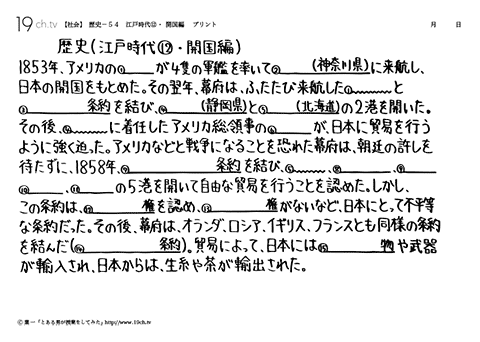 19ch.tv 【社会】 歴史－54 江戸時代⑲・ 開国編 プリント 月 日
歴史(江戸時代⑲・開国編)
1853年、アメリカの① が4隻の軍艦を率いて② (神奈川県)に来航し、
日本の開国をもとめた。その翌年、幕府は、ふたたび来航した① と
③ 条約を結び、④ (静岡県)と⑤ (北海道)の2港を開いた。
その後、④ に着任したアメリカ総領事の⑥ が、日本に貿易を行う
ように強く迫った。アメリカなどと戦争になることを恐れた幕府は、朝廷の許しを
待たずに、1858年、⑦ 条約を結び、⑤ 、⑧ 、⑨
⑩ 、⑪ の5港を開いて自由な貿易を行うことを認めた。しかし、
この条約は、⑫ 権を認め、⑬ 権がないなど、日本にとって不平等
な条約だった。その後、幕府は、オランダ、ロシア、イギリス、フランスとも同様の条約
を結んだ(⑭ 条約)。貿易によって、日本には⑮ 物や武器
が輸入され、日本からは、生糸や茶が輸出された。
Ⓒ葉一「とある男が授業をしてみた」http://www.19ch.tv